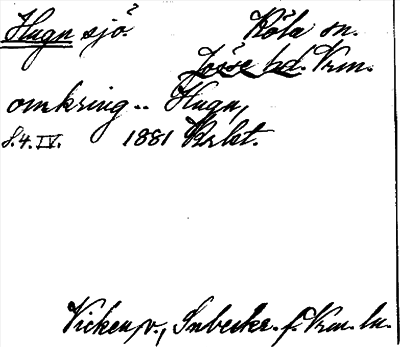 Hugn sjö Köla sn.
Jösse hd. Vrm.
omkring .. Hugn,
S. 4. IV. 1881 Vrbt.
Vicken, v., Snbeskr. f. Vrm. ln.